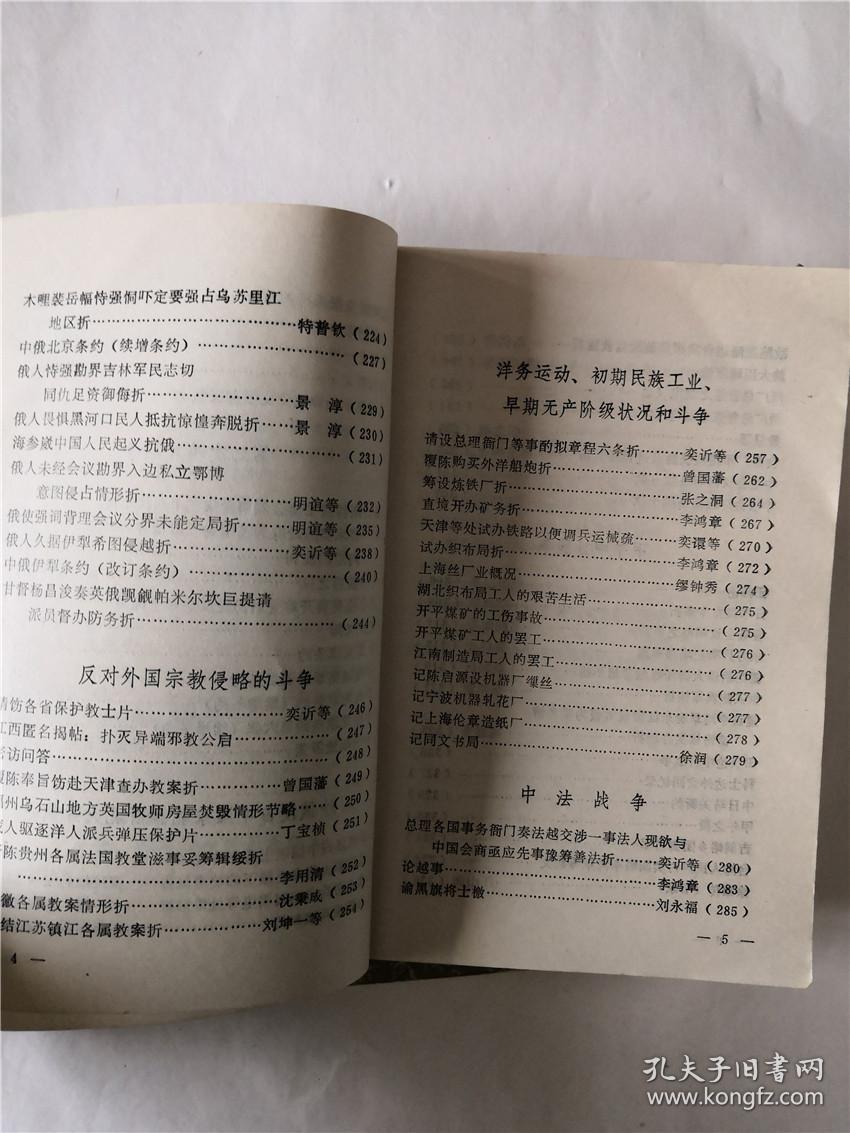 木哩裴岳幅恃强恫吓定要强占乌苏里江
地区折……………………特普钦（224）
中俄北京条约（续增条约）………………（227）
俄人恃强勘界吉林军民志切
同仇足资御侮折………………景　淳（229）
俄人畏惧黑河口民人抵抗惊惶奔脱折……景　淳（230）
海参崴中国人民起义抗俄………………（231）
俄人未经会议勘界入边私立鄂博
意图侵占情形折………………明谊等（232）
俄使强词背理会议分界未能定局折……明谊等（235）
俄人久据伊犁希图侵越折………………奕䜣等（238）
中俄伊犁条约（改订条约）………………（240）
甘督杨昌浚奏英俄觊觎帕米尔坎巨提请
派员督办防务折………………（244）
反对外国宗教侵略的斗争
请饬各省保护教士片………………奕䜣等（246）
江西匿名揭帖：扑灭异端邪教公启………（247）
密访问答………………（248）
覆陈奉旨饬赴天津查办教案折………曾国藩（249）
州乌石山地方英国牧师房屋焚毁情形节略……（250）
人驱逐洋人派兵弹压保护片………丁宝桢（251）
陈贵州各属法国教堂滋事妥筹辑绥折
………………李用清（252）
徽各属教案情形折………………沈秉成（253）
结江苏镇江各属教案折………………刘坤一等（254）
4 —
洋务运动、初期民族工业、
早期无产阶级状况和斗争
请设总理衙门等事酌拟章程六条折………奕䜣等（257）
覆陈购买外洋船炮折………………曾国藩（262）
筹设炼铁厂折………………张之洞（264）
直境开办矿务折………………李鸿章（267）
天津等处试办铁路以便调兵运械疏………奕譞等（270）
试办织布局折………………李鸿章（272）
上海丝厂业概况………………缪钟秀（274）
湖北织布局工人的艰苦生活………………（275）
开平煤矿的工伤事故………………（275）
开平煤矿工人的罢工………………（276）
江南制造局工人的罢工………………（276）
记陈启源设机器厂缫丝………………（277）
记宁波机器轧花厂………………（277）
记上海伦章造纸厂………………（278）
记同文书局………………徐润（279）
中　法　战　争
总理各国事务衙门奏法越交涉一事法人现欲与
中国会商亟应先事豫筹善法折………奕䜣等（280）
论越事………………李鸿章（283）
谕黑旗将士檄………………刘永福（285）
— 5 —
孔夫子旧书网
www.kongfz.com